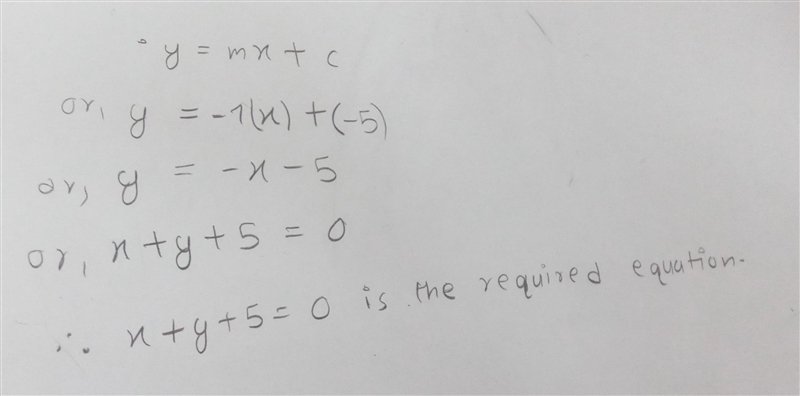 y = mx + c
or, y = -1(x) + (-5)
or, y = -x - 5
or, x + y + 5 = 0
∴ x + y + 5 = 0 is the required equation.